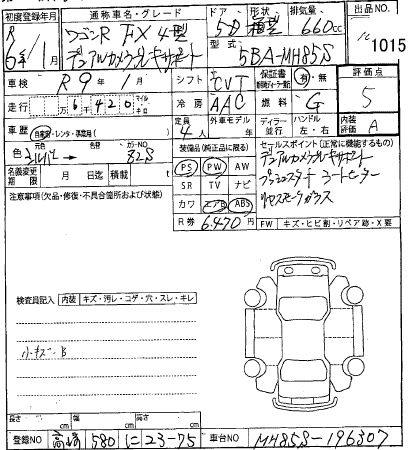 初度登録年月 通称車名・グレード ドア 形状 排気量 出品NO
R 6年/1月 ワゴンR FX 4型 5D 箱型 660cc 1015
デュアルカメラブレーキサポート 型式 5BA-MH85S
車検 R9年1月 シフト CVT 保証書 有・無 評価点
走行 万6千420 マイル キロ 冷房 AAC 燃料 G 5
車歴 自家用・レンタ・事業用 定員 4人 外車モデル ディラー 並行 ハンドル 左・右 内装評価 A
色 シルバー → 色替 カラーNO 82S 装備品(純正品に限る) セールスポイント(正常に機能するもの)
名義変更期限 月 日迄 積載 t PS PW AW デュアルカメラブレーキサポート
注意事項(欠品・修復・不具合箇所および状態) SR TV ナビ プッシュスタート シートヒーター
カワ エアB ABS
R券 6.470円 FW キズ・ヒビ割・リペア跡・X要
検査員記入 内装 キズ・汚レ・コゲ・穴・スレ・キレ
小キズ・B
長さ cm 幅 cm 高さ cm
登録NO 高崎 580 に 23-75 車台NO MH85S-196307